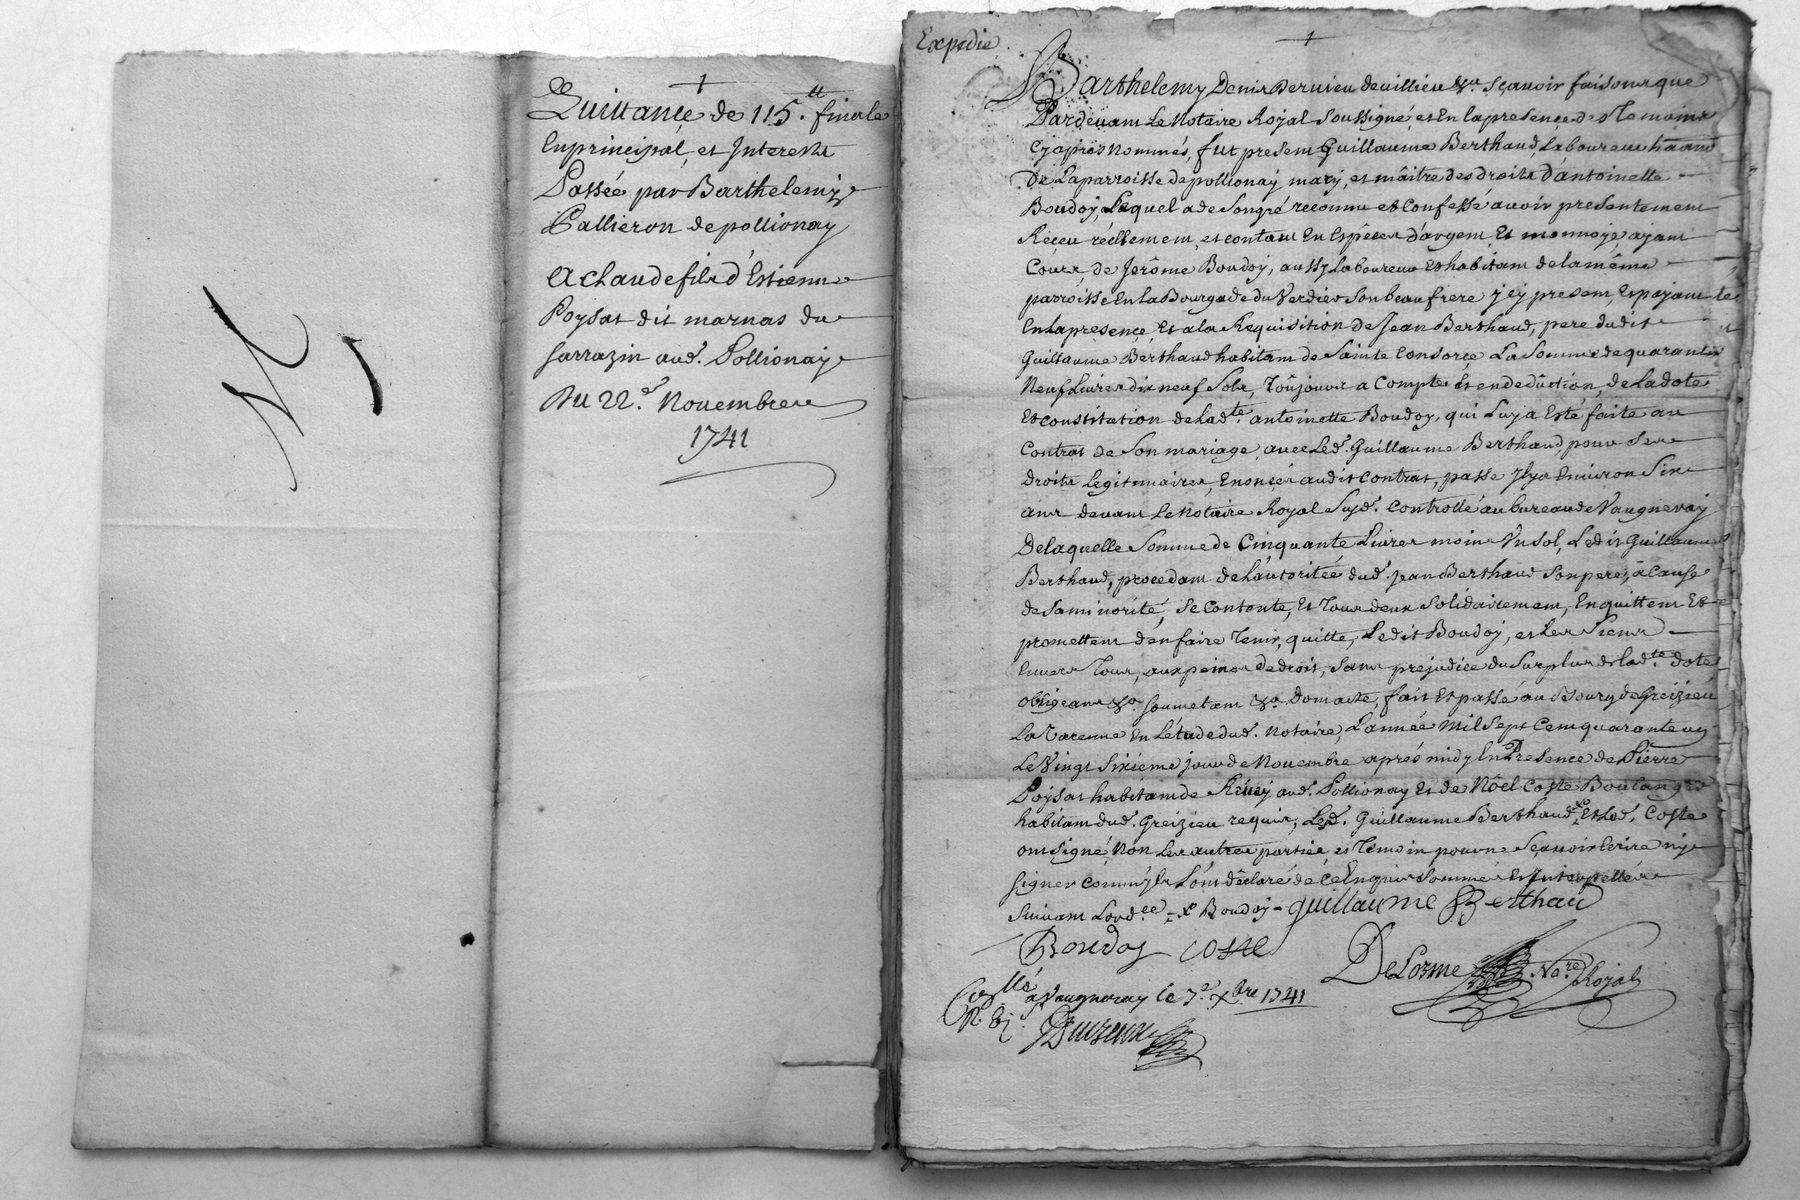 Quittance de 115.₶ finale
En principal, et Interests
Passée par Barthelemy
Pallieron de pollionay
A claude fils d'Estienne
Poysat dit marnas du
sarrazin aud.t Pollionay
Du 22.e Novembre
1741
Expedié
Barthelemy Denis Dervieu de villieu &a. Sçavoir faisons que
Pardevant Le Notaire Royal soussigné, et En la presence des Temoins
Cy apres Nommés, fut present Guillaume Berthaud, Laboureur habitant
De La parroisse de pollionay mary, et maître des droits d'antoinette
Boudoy, Lequel a de son gré reconnu et confessé avoir presentement
Receu réellement, et contant En Espêces d'argent Et monnoye ayant
Cours, de Jerôme Boudoy, aussy Laboureur Et habitant de la même
parroisse En La Bourgade du Verdier son beau frere jcy present, Et payant
En la presence, Et a la Requisition de Jean Berthaud, pere dudit
Guillaume Berthaud habitant de Sainte Consorce La Somme de quarante
Neuf Livres dix neuf Sols, Toûjours a Compte et en dedûction, de La dote
Et constitution de Lad.te antoinette Boudoy, qui Luy a Esté faite au
Contrat de Son mariage, avec Led.t Guillaume Berthaud, pour Ses
droits Legitimaires, Enoncés audit Contrat, passé Il y a Environ Six
ans devant Le Notaire Royal Susd.t Controllé au bureau de Vaugneray
De laquelle Somme de Cinquante Livres moins Un Sol, Ledit Guillaume
Berthaud, procedant de L'autoritée dud.t Jean Berthaud son pere, à Cause
de Sa minorité, se Contente, Et Tous deux Solidairement, En quittent Et
promettent d'en faire Tenir, quitte, Ledit Boudoy, et Les Siens
Envers Tous, aux peines de droit, Sans prejudice du Surplus de Lad.te dote
obligeant &a. soumettant &a. Dont acte, fait Et passé au Bourg de Greizieu
La Varenne En L'étude dud.t Notaire, L'année Mil Sept Cent quarante un
Le Vingt Sixieme jour de Novembre aprés midy En Presence de Pierre
Poysat habitant de Réuy aud.t Pollionay Et de Nôel Coste Boulanger
habitant dud.t Greizieu requis, Led.t Guillaume Berthaud, Et Led.t Coste
ont signé, Non Les autres parties, et Temoin pour ne Sçavoir Ecrire ny
signer Comm'ils L'ont déclaré de ce Enquis Sommés Et Interpellés
Suivant L'ord.ce x Boudoy guillaume Berthaud
Boudoy Coste
DeLorme No.re Royal
Con.llé a Vaugneray le 7.e Xbre 1741